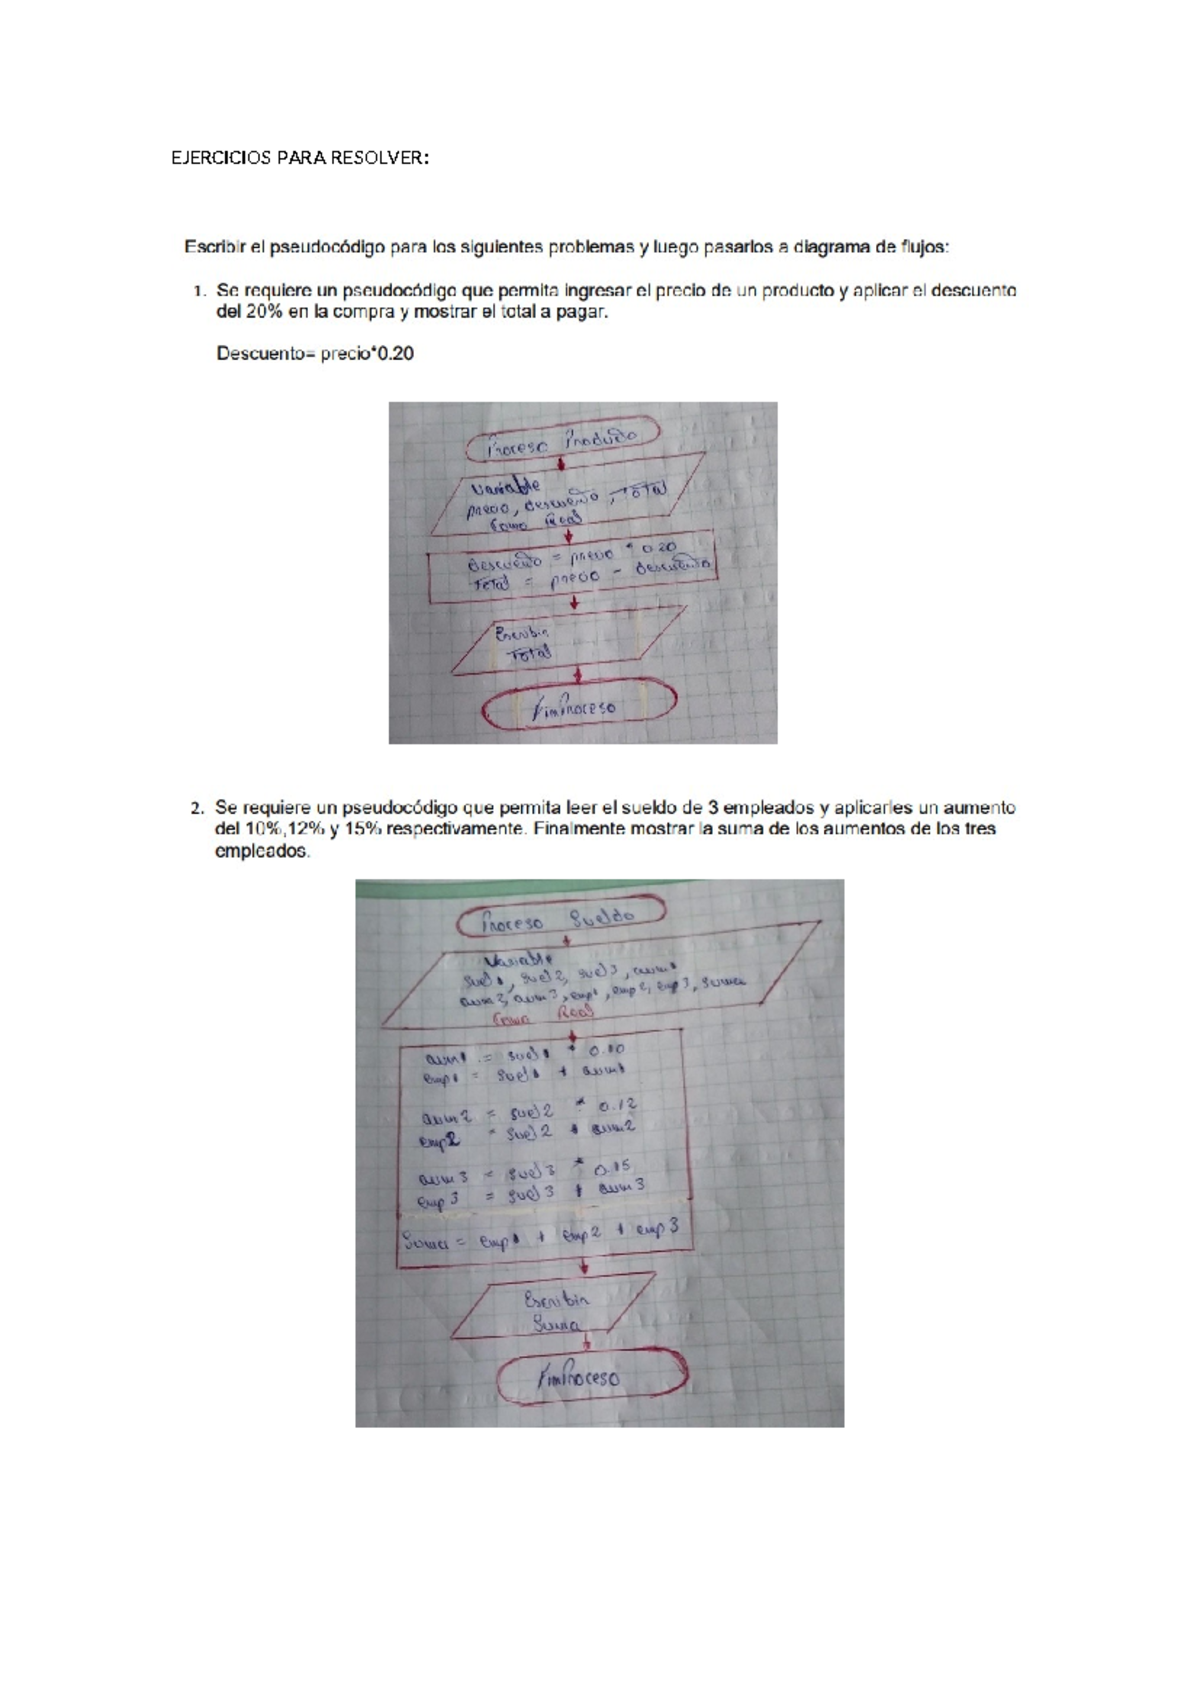 EJERCICIOS PARA RESOLVER:
Escribir el pseudocódigo para los siguientes problemas y luego pasarlos a diagrama de flujos:
1. Se requiere un pseudocódigo que permita ingresar el precio de un producto y aplicar el descuento
del 20% en la compra y mostrar el total a pagar.
Descuento= precio*0.20
Proceso Producto
Variable
precio, descuento, Total
Como Real
descuento = precio * 0.20
Total = precio - descuento
Escribir
Total
FinProceso
2. Se requiere un pseudocódigo que permita leer el sueldo de 3 empleados y aplicarles un aumento
del 10%,12% y 15% respectivamente. Finalmente mostrar la suma de los aumentos de los tres
empleados.
Proceso Sueldo
Variable
suel1, suel2, suel3, aum1
aum2, aum3, emp1, emp2, emp3, suma
Como Real
aum1 = suel1 * 0.10
emp1 = suel1 + aum1
aum2 = suel2 * 0.12
emp2 = suel2 + aum2
aum3 = suel3 * 0.15
emp3 = suel3 + aum3
Suma = emp1 + emp2 + emp3
Escribir
Suma
FinProceso